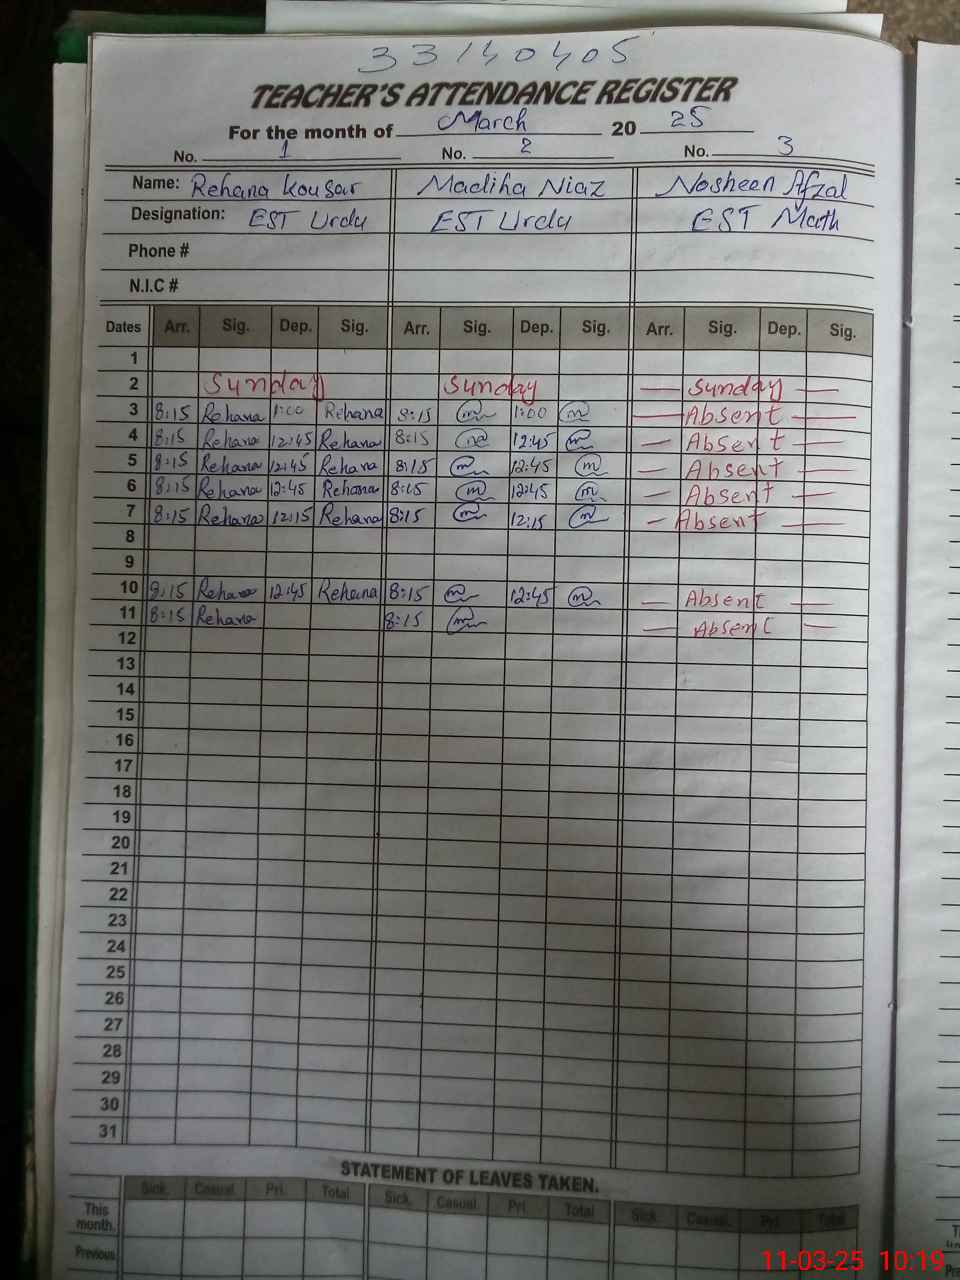 33140405
TEACHER'S ATTENDANCE REGISTER
For the month of March 20 25
No. 1 No. 2 No. 3
Name: Rehana Kousar Madiha Niaz Nosheen Afzal
Designation: EST Urdu EST Urdu EST Math
Phone #
N.I.C #
Dates Arr. Sig. Dep. Sig. Arr. Sig. Dep. Sig. Arr. Sig. Dep. Sig.
1
2 Sunday Sunday — Sunday —
3 8:15 Rehana 1:00 Rehana 8:15 1:00 — Absent —
4 8:15 Rehana 12:45 Rehana 8:15 12:45 — Absent —
5 8:15 Rehana 12:45 Rehana 8:15 12:45 — Absent —
6 8:15 Rehana 12:45 Rehana 8:15 12:45 — Absent —
7 8:15 Rehana 12:15 Rehana 8:15 12:15 — Absent —
8
9
10 8:15 Rehana 12:45 Rehana 8:15 12:45 — Absent —
11 8:15 Rehana 8:15 — Absent —
12
13
14
15
16
17
18
19
20
21
22
23
24
25
26
27
28
29
30
31
STATEMENT OF LEAVES TAKEN.
Sick. Casual. Pri. Total Sick. Casual. Pri. Total Sick. Casual. Pri. Total
This
month.
Previous
11-03-25 10:19